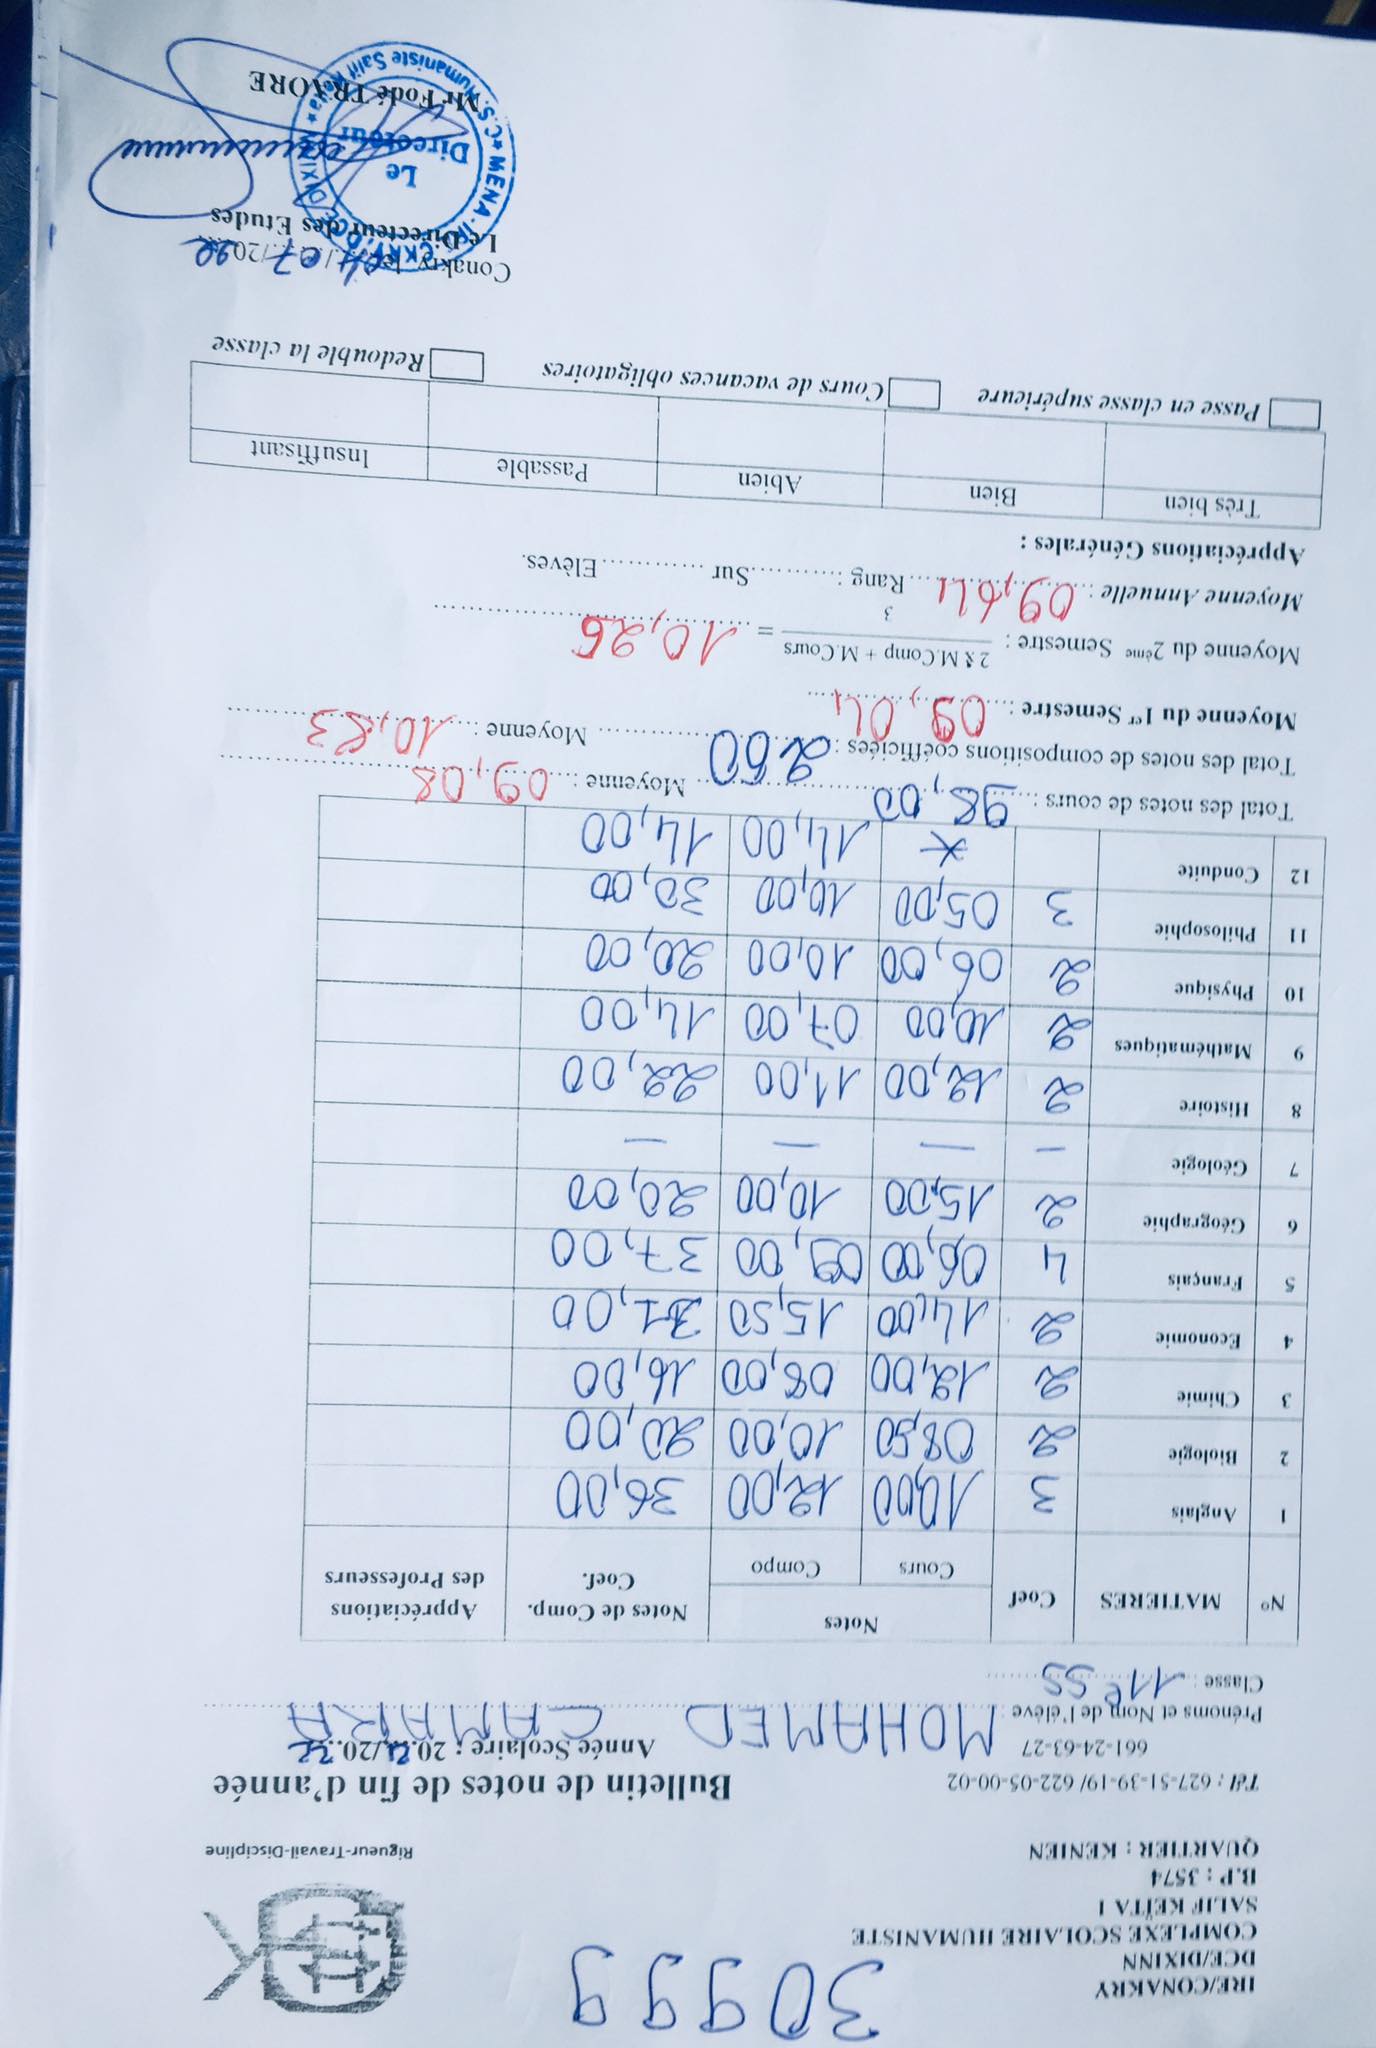 30999
IRE/CONAKRY
DCE/DIXINN
COMPLEXE SCOLAIRE HUMANISTE
SALIF KEÏTA I
B.P : 3574
QUARTIER : KENIEN
Rigueur-Travail-Discipline
Tél : 627-51-39-19/ 622-05-00-02
661-24-63-27
Bulletin de notes de fin d'année
Année Scolaire : 20.21/20.22
Prénoms et Nom de l'élève : MOHAMED CAMARA
Classe : 11e SS
N° MATIERES Coef Notes Notes de Comp. Coef. Appréciations des Professeurs
Cours Compo
1 Anglais 3 10,00 12,00 36,00
2 Biologie 2 08,50 10,00 20,00
3 Chimie 2 12,00 08,00 16,00
4 Economie 2 14,00 15,50 31,00
5 Français 4 06,00 09,00 37,00
6 Géographie 2 15,00 10,00 20,00
7 Géologie — — — —
8 Histoire 2 12,00 11,00 22,00
9 Mathématiques 2 10,00 07,00 14,00
10 Physique 2 06,00 10,00 20,00
11 Philosophie 3 05,00 10,00 30,00
12 Conduite 14,00 14,00
Total des notes de cours : 98,00 Moyenne : 09,08
Total des notes de compositions coéfficiées : 260 Moyenne : 10,83
Moyenne du 1er Semestre : 09,04
Moyenne du 2ème Semestre : 2 x M.Comp + M.Cours / 3 = 10,25
Moyenne Annuelle : 09,64 Rang : Sur Elèves.
Appréciations Générales :
Très bien Bien Abien Passable Insuffisant
Passe en classe supérieure Cours de vacances obligatoires Redouble la classe
Conakry, le 04/07/2022
Le Directeur des Etudes
Le
Directeur
Mr Fodé TRAORE